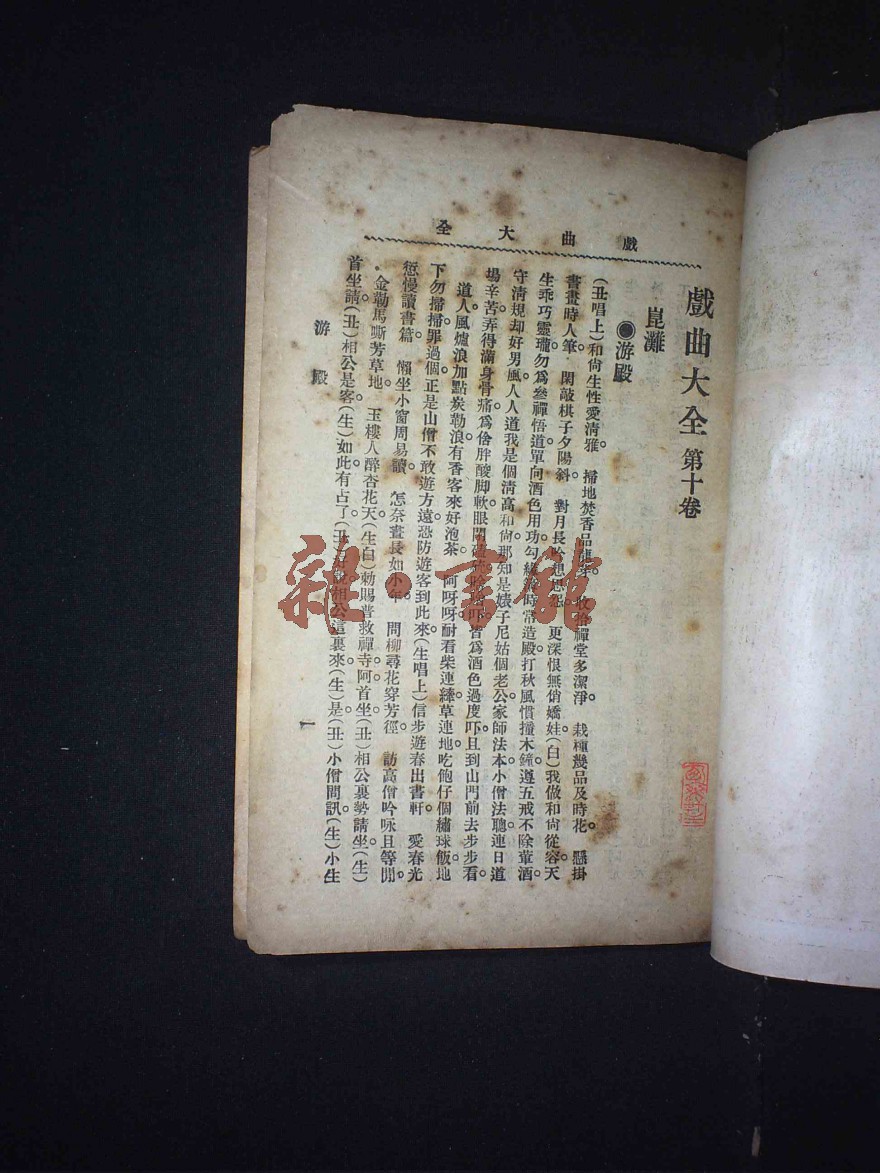 戲曲大全
戲曲大全 第十卷
崑灘
●游殿
(丑唱上)和尙生性愛淸雅。 掃地焚香品 收拾禪堂多潔淨。 栽種幾品及時花。 懸掛
書畫時人筆。 閑敲棋子夕陽斜。 對月長吟想 更深恨無俏嬌娃(白)我做和尙從容天
生乖巧靈瓏勿爲參禪悟道單向酒色用功勾 時常造殿打秋風慣撞木鐘遵五戒不除葷酒。
守淸規却好男風人人道我是個淸高和尙那知是 子尼姑個老公家師法本小僧法聰連日道
場辛苦弄得滿身骨痛爲偺胖酸脚軟眼 吓皆爲酒色過度吓且到山門前去步步看。
道人風爐浪加點炭勒浪有香客來好泡茶 阿呀呀耐看柴連縴草連地吃飽仔個繡球飯地
下勿掃掃罪過個正是山僧不敢遊方遠恐防遊客到此來。(生唱上)信步遊春出書軒。 愛春光
慢讀書篇。 懶坐小窗周易讀。 怎奈晝長如小年。 問柳尋花穿芳徑。 訪高僧吟咏且等閒。
金勒馬嘶芳草地。 玉樓人醉杏花天。(生白)勅賜普救禪寺阿首坐。(丑)相公裏勢請坐。(生)
首坐請。(丑)相公是客(生)如此有占了(丑) 相公這裏來。(生)是。(丑)小僧問訊。(生)小生
游殿
一
雜·書館